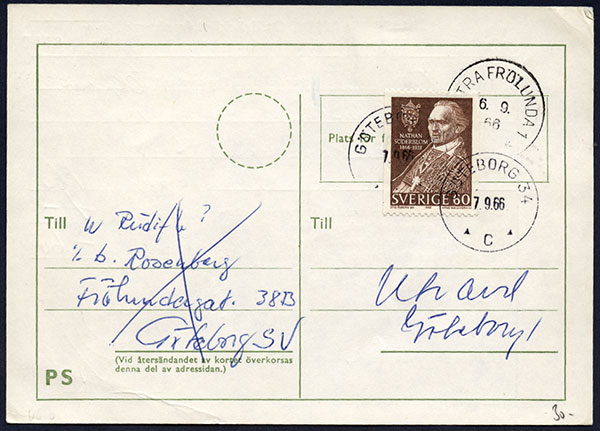 VÄSTRA FRÖLUNDA 1
6. 9.
66
GÖTEBORG
7.9.66
Plats för f
NATHAN
SÖDERBLOM
1866-1931
SVERIGE 60
GÖTEBORG 34
7.9.66
C
Till
c/o b. Rosenberg
Frölundagat. 38B
Göteborg SV
(Vid återsändandet av kortet överkorsas
denna del av adressidan.)
PS
Till
Göteborg 1
30-